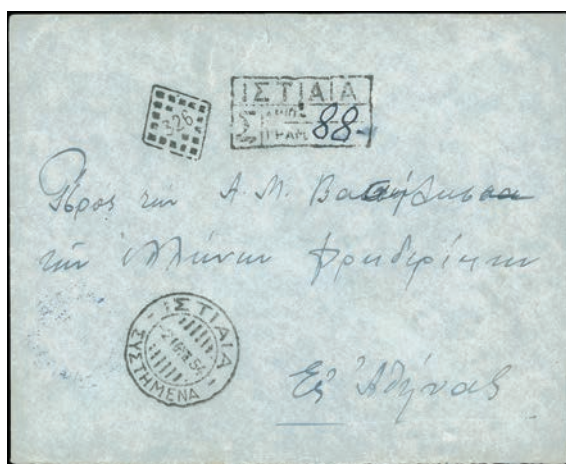 326
ΙΣΤΙΑΙΑ
Σ ΑΡΙΘ.
ΓΡΑΜ. 88
Πρὸς τὴν Α. Μ. Βασίλησσα
τῶν ἑλλήνων Φρειδερίκην
ΙΣΤΙΑΙΑ
54
ΣΥΣΤΗΜΕΝΑ
Εἰς Ἀθήνας